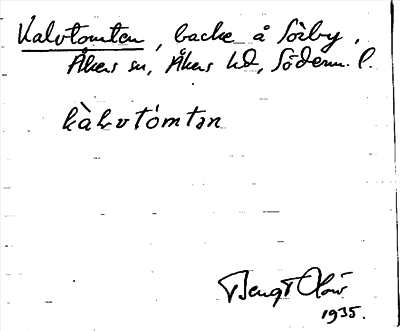 Kalvtomten, backe å Sörby,
Åkers sn, Åkers hd, Söderm. l.
kàlvtómtən
Bengt
1935.